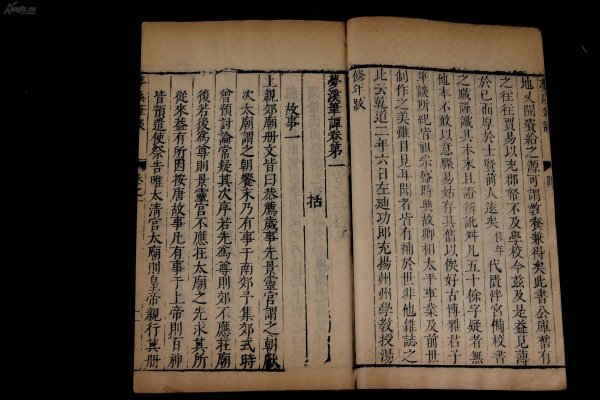 地乂開賚給之源可謂教養兼得矣此書公庫舊有
之往往貿易以充郡帑不及學校今兹及是益見薄
於己而厚於士賢前人遠矣 代匱泮宮備校書
之職謹識其本末且證辨訛舛凡五十餘字疑者無
他本不敢以意驟易姑存其舊以俟好古博雅君子
筆談所紀皆祖宗盛時典故卿相太平事業及前世
制作之美雖目見耳聞者皆有補於世非他雜誌之
比云乾道二年六日左廸功郎充揚州州學教授湯
修年跋
夢溪筆談卷第一
括
故事一
上親郊廟册文皆曰恭薦歲事先景靈宮謂之朝獻
次太廟謂之朝饗末乃有事于南郊予集郊式時
曾預討論常疑其次序若先爲尊則郊不應在廟
後若後爲尊則景靈宮不應在太廟之先求其所
從來蓋有所因按唐故事凡有事于上帝則百神
皆預遣使祭告唯太清宮太廟則皇帝親行其册